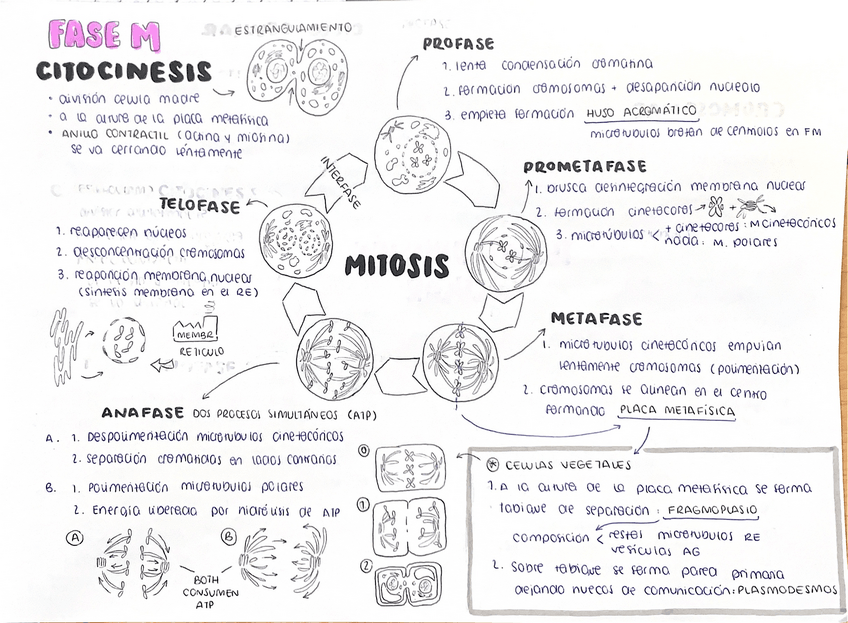 FASE M
CITOCINESIS
• división celula madre
• a la altura de la placa metafísica
• ANILLO CONTRACTIL (actina y miosina)
se va cerrando lentamente
ESTRANGULAMIENTO
PROFASE
1. lenta condensación cromatina
2. formacion cromosomas + desaparición nucleolo
3. empieza formación HUSO ACROMÁTICO
microtubulos brotan de centriolos en FM
PROMETAFASE
1. brusca desintegración membrana nuclear
2. formación cinetocoros → +
3. microtúbulos < + cinetocoros: M cinetocóricos
nada: M. polares
INTERFASE
TELOFASE
1. reaparecen núcleos
2. desconcentración cromosomas
3. reaparición membrana nuclear
(síntesis membrana en el RE)
MEMBR
RETICULO
MITOSIS
METAFASE
1. microtubulos cinetocóricos empujan
lentamente cromosomas (polimentación)
2. cromosomas se alinean en el centro
formando PLACA METAFÍSICA
ANAFASE DOS PROCESOS SIMULTÁNEOS (ATP)
A. 1. Despolimentación microtubulos cinetocóricos
2. separación cromatidas en lados contrarios
B. 1. Polimentación microtubulos polares
2. Energia liberada por hidrólisis de ATP
A
B
BOTH
CONSUMEN
ATP
0
1
2
* CELULAS VEGETALES
1. A la altura de la placa metafísica se forma
tabique de separación: FRAGMOPLASTO
composición < restos microtubulos RE
vesículos AG
2. Sobre tabique se forma pared primaria
dejando huecos de comunicación: PLASMODESMOS